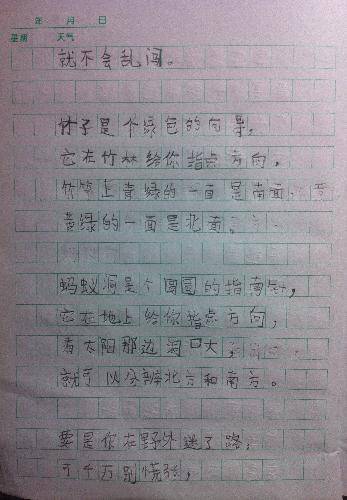 年 月 日
星期 天气
就不会乱闯。
竹子是个绿色的向导，
它在竹林给你指点方向，
竹竿上青绿的一面是南面，
黄绿的一面是北面。
蚂蚁洞是个圆圆的指南针，
它在地上给你指点方向，
看太阳那边洞口大，
就可以分辨北方和南方。
要是你在野外迷了路，
可千万别慌张，